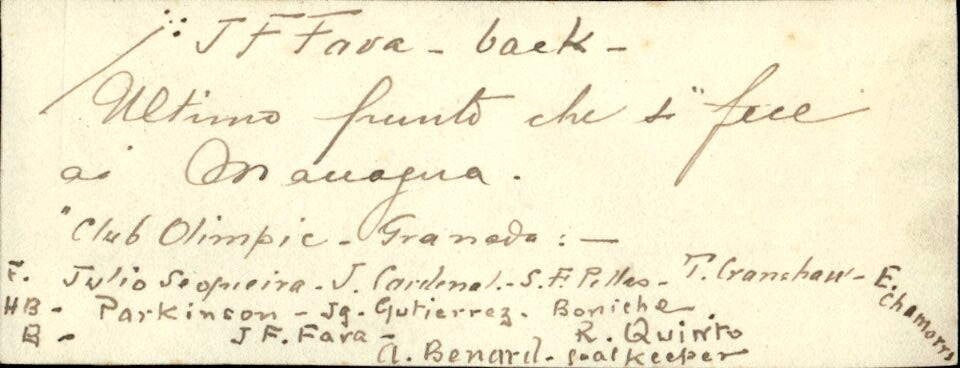 J F Fava - back -
Ultimo punto che si fece
ai Managua.
"Club Olimpic - Granada: -
F. Julio Sequeira - J. Cardenal. - S. F. Pellas - T. Cranshaw - E. Chamorro
HB - Parkinson - Ig. Gutierrez. Boniche
B - J F. Fava - R. Quinto
A. Benard - goalkeeper